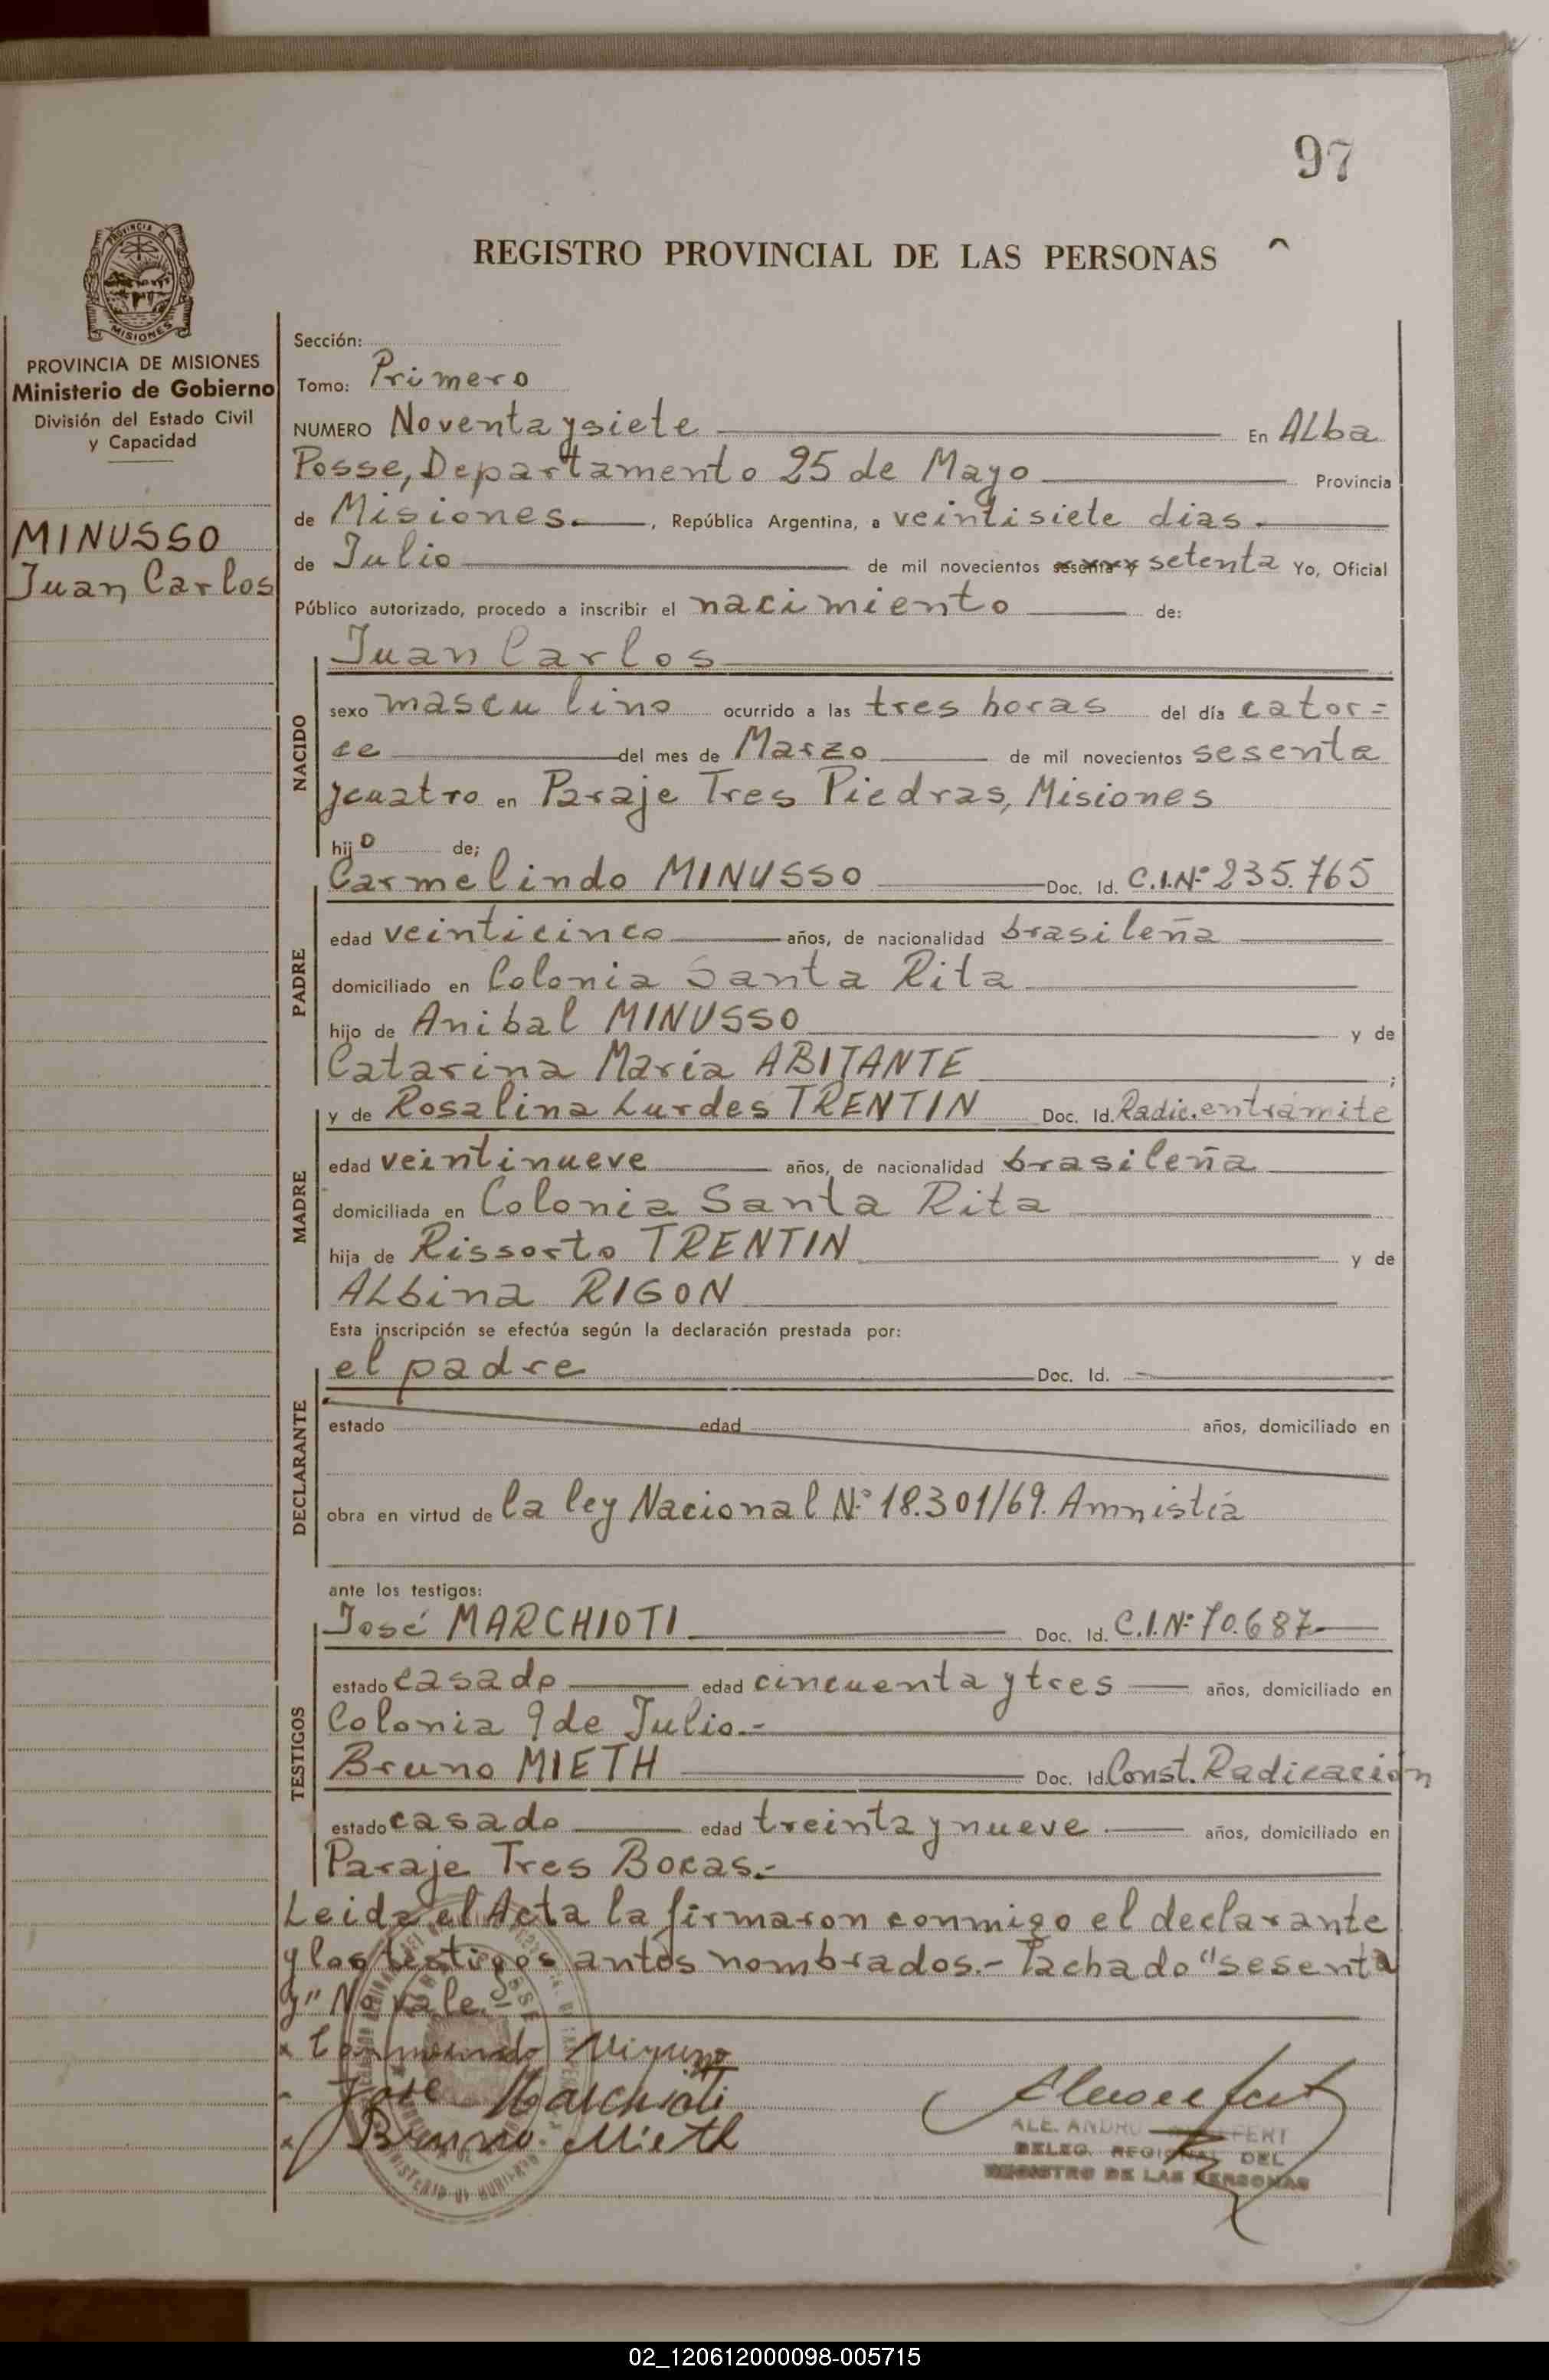 97
REGISTRO PROVINCIAL DE LAS PERSONAS
PROVINCIA DE MISIONES
Ministerio de Gobierno
División del Estado Civil
y Capacidad
MINUSSO
Juan Carlos
Sección:
Tomo: Primero
NUMERO Noventa y siete En ALba
Posse, Departamento 25 de Mayo Provincia
de Misiones. , República Argentina, a veintisiete dias.
de Julio de mil novecientos sesenta y setenta Yo, Oficial
Público autorizado, procedo a inscribir el nacimiento de:
NACIDO
Juan Carlos
sexo masculino ocurrido a las tres horas del día cator=
ce del mes de Marzo de mil novecientos sesenta
y cuatro en Paraje Tres Piedras, Misiones
hijo de;
PADRE
Carmelindo MINUSSO Doc. Id. C.I.Nº 235.765
edad veinticinco años, de nacionalidad brasileña
domiciliado en Colonia Santa Rita
hijo de Anibal MINUSSO y de
Catarina María ABITANTE ;
MADRE
y de Rosalina Lurdes TRENTIN Doc. Id. Radic. en trámite
edad veintinueve años, de nacionalidad brasileña
domiciliada en Colonia Santa Rita
hija de Rissorto TRENTIN y de
ALbina RIGON
Esta inscripción se efectúa según la declaración prestada por:
DECLARANTE
el padre Doc. Id.
estado edad años, domiciliado en
obra en virtud de la ley Nacional Nº 18.301/69. Amnistía
ante los testigos:
TESTIGOS
José MARCHIOTI Doc. Id. C.I.Nº 70.687
estado casado edad cincuenta y tres años, domiciliado en
Colonia 9 de Julio.-
Bruno MIETH Doc. Id. Const. Radicación
estado casado edad treinta y nueve años, domiciliado en
Paraje Tres Bocas.-
Leida el Acta la firmaron conmigo el declarante
y los testigos antes nombrados.- Tachado "sesenta
y" No vale.-
José Marchioti
Bruno Mieth
DELEG. REGIONAL DEL
REGISTRO DE LAS PERSONAS
02_120612000098-005715